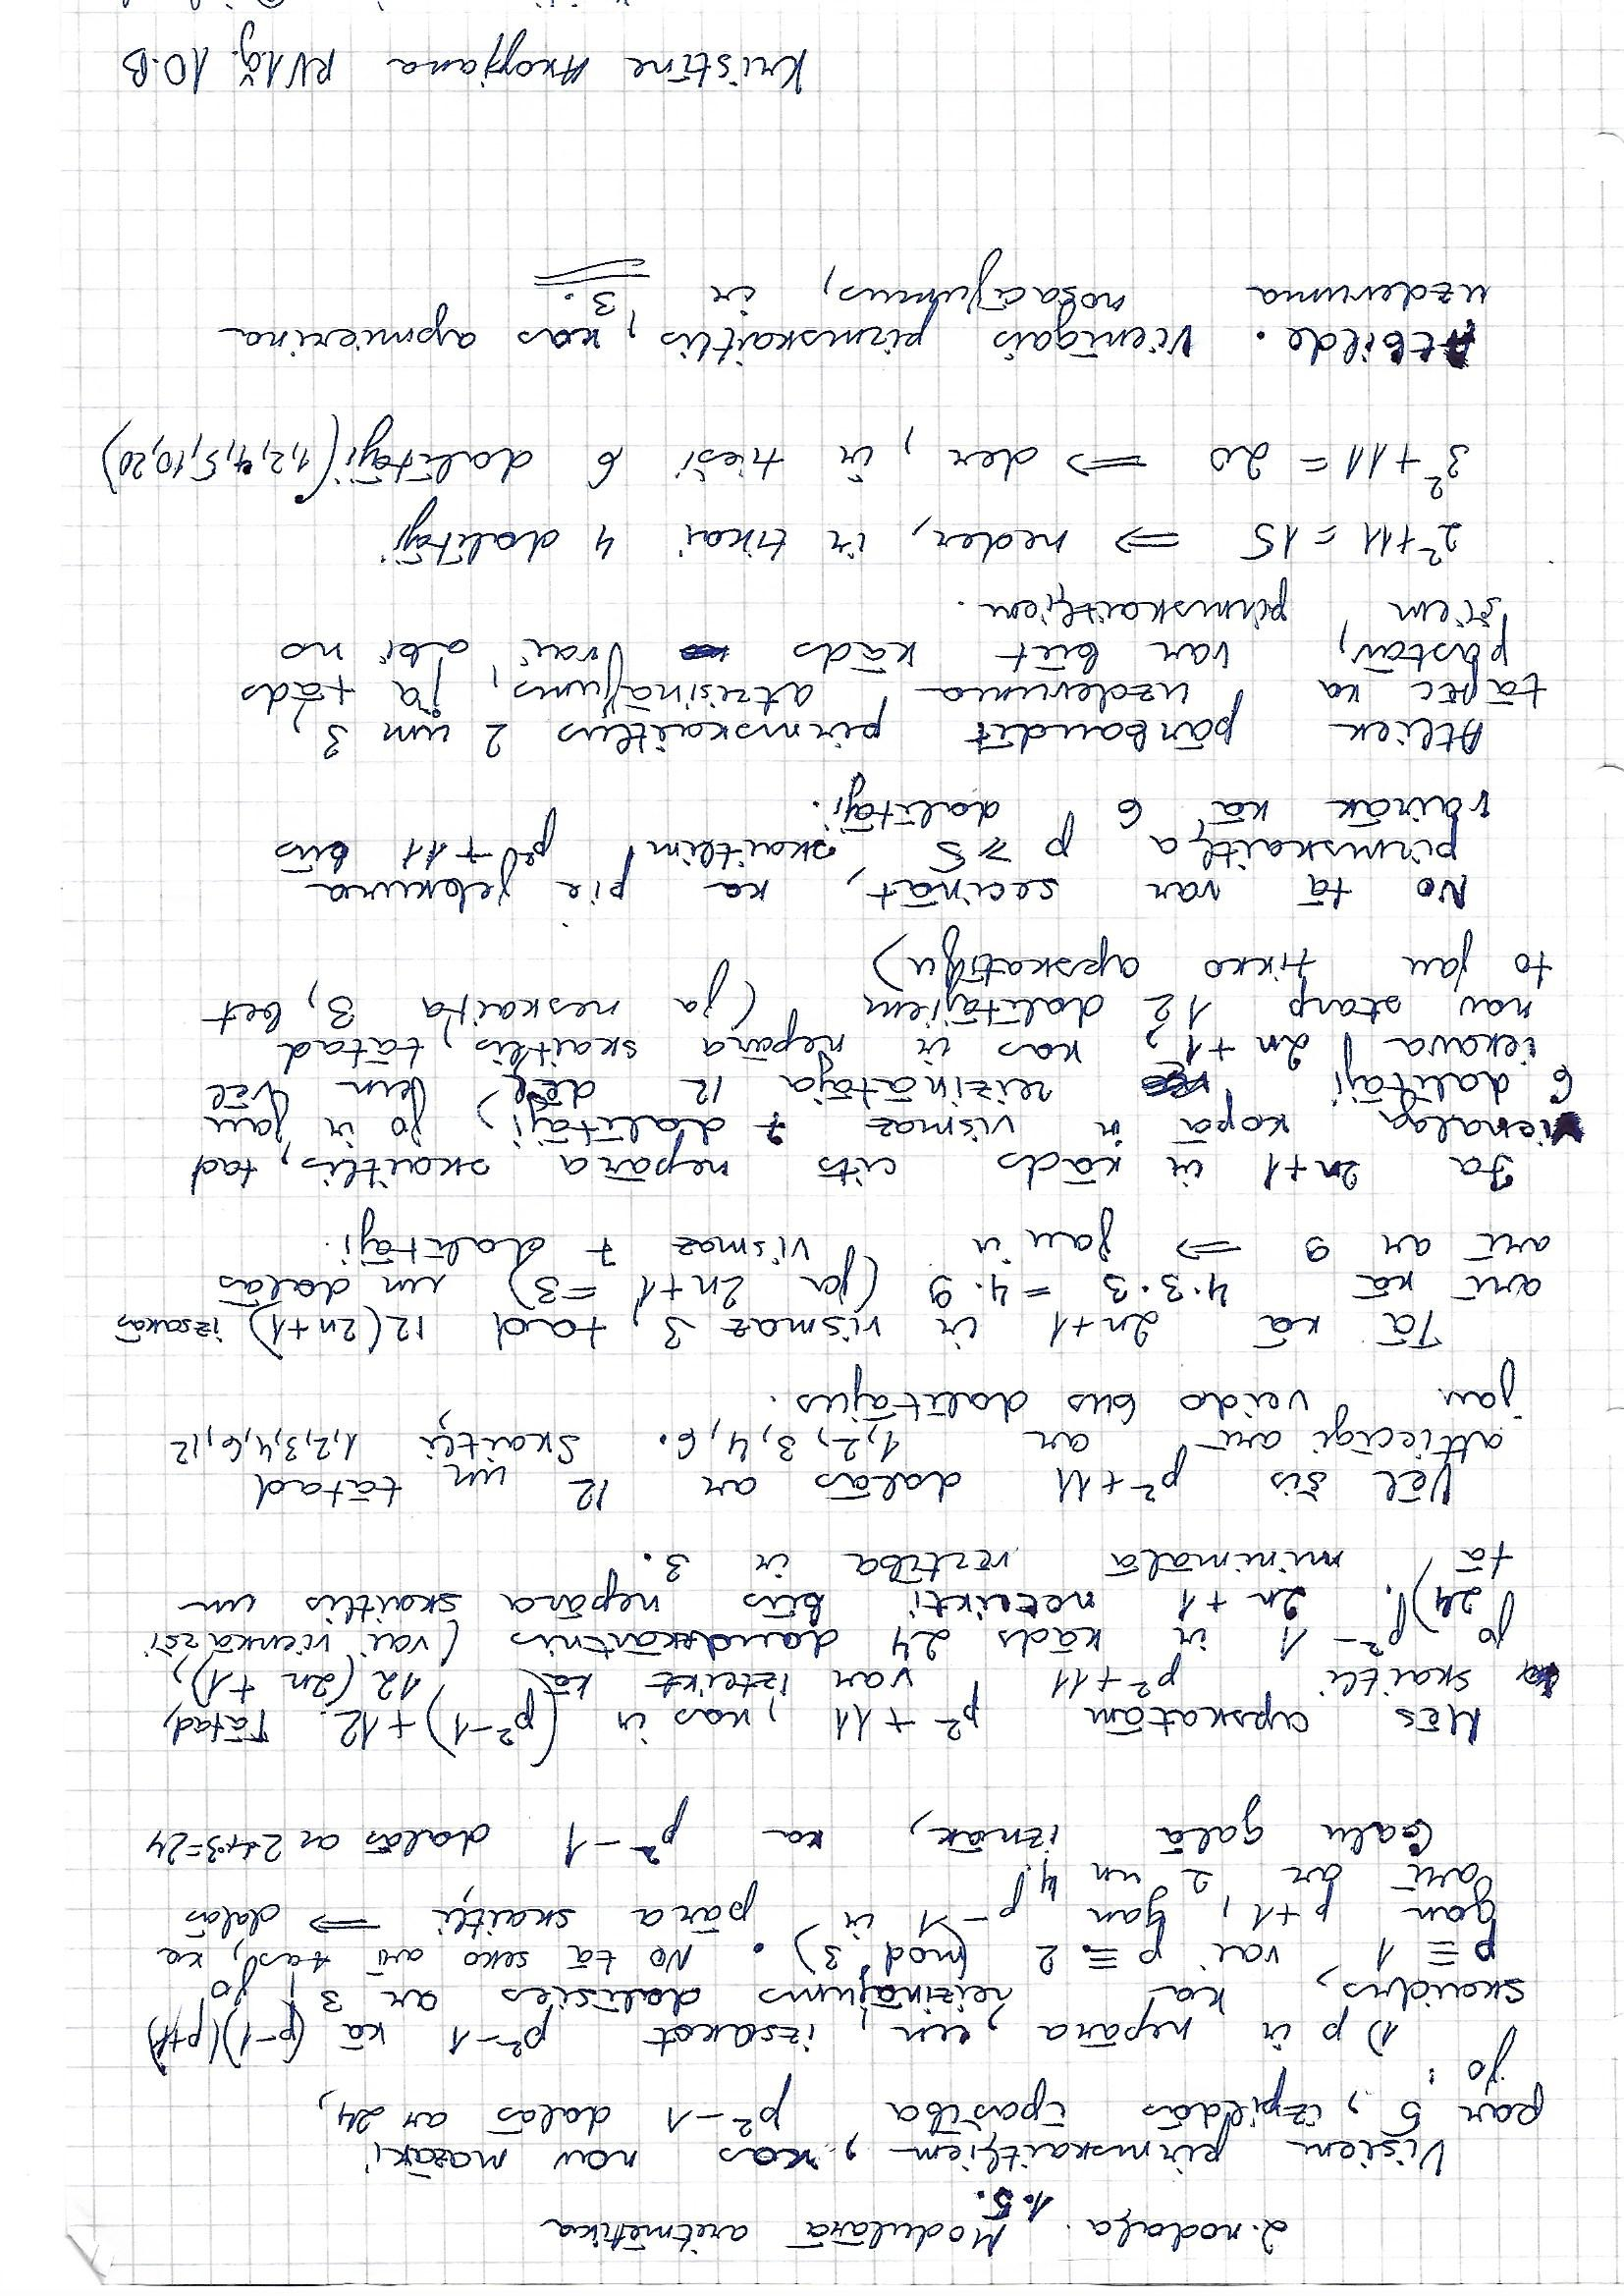 2. nodaļa. Modulārā aritmētika
1.5.
Visiem pirmskaitļiem, kas nav mazāki
par 5, izpildās īpašība p²-1 dalās ar 24,
jo:
1) p ir nepāra, un, izsakot p²-1 kā (p-1)(p+1)
skaidrs, ka reizinājums dalīsies ar 3, jo
p ≡ 1, vai p ≡ 2 (mod 3). No tā seko arī tas, ka
gan p+1, gan p-1 ir pāra skaitļi, ⇒ dalās
arī ar 2 un 4.
Galu galā iznāk, ka p²-1 dalās ar 2·4·3=24
Mēs apskatām p²+11, kas ir (p²-1)+12. Tātad,
skaitli p²+11 var izteikt kā 12(2n+1),
jo p²-1 ir kāds 24 daudzkārtnis (vai vienkārši
24). 2n+1 noteikti būs nepāra skaitlis un
tā minimālā vērtība ir 3.
Vēl šis p²+11 dalās ar 12 un tātad
attiecīgi arī ar 1,2,3,4,6. Skaitļi 1,2,3,4,6,12
jau veido 6us dalītājus.
Tā kā 2n+1 ir vismaz 3, tad 12(2n+1) izsakās
arī kā 4·3·3 = 4·9 (ja 2n+1 =3) un dalās
arī ar 9 ⇒ jau ir vismaz 7 dalītāji.
Ja 2n+1 ir kāds cits nepāra skaitlis, tad
vienalga kopā ir vismaz 7 dalītāji, jo ir jau
6 dalītāji reizinātāja 12 dēļ, un vēl
iekava 2n+1, kas ir nepāra skaitlis, tātad
nav starp 12 dalītājiem (ja neskaita 3, bet
to jau tikko apskatīju)
No tā var secināt, ka pie jebkura
pirmskaitļa p ⩾ 5 skaitlim p²+11 būs
vairāk kā 6 dalītāji.
Atliek pārbaudīt pirmskaitļus 2 un 3,
tāpēc ka uzdevuma atrisinājums, ja tāds
pastāv, var būt kāds vai abi no
šiem pirmskaitļiem.
2²+11 = 15 ⇒ neder, ir tikai 4 dalītāji
3²+11 = 20 ⇒ der, ir tieši 6 dalītāji (1,2,4,5,10,20)
Atbilde. Vienīgais pirmskaitlis, kas apmierina
uzdevuma nosacījumus, ir 3.
Kristīne RV1ģ. 10.B